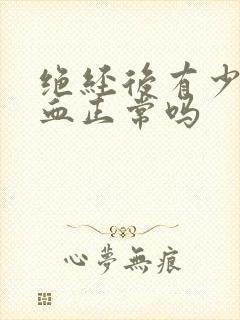 绝經後有少
血正常吗
心夢無痕